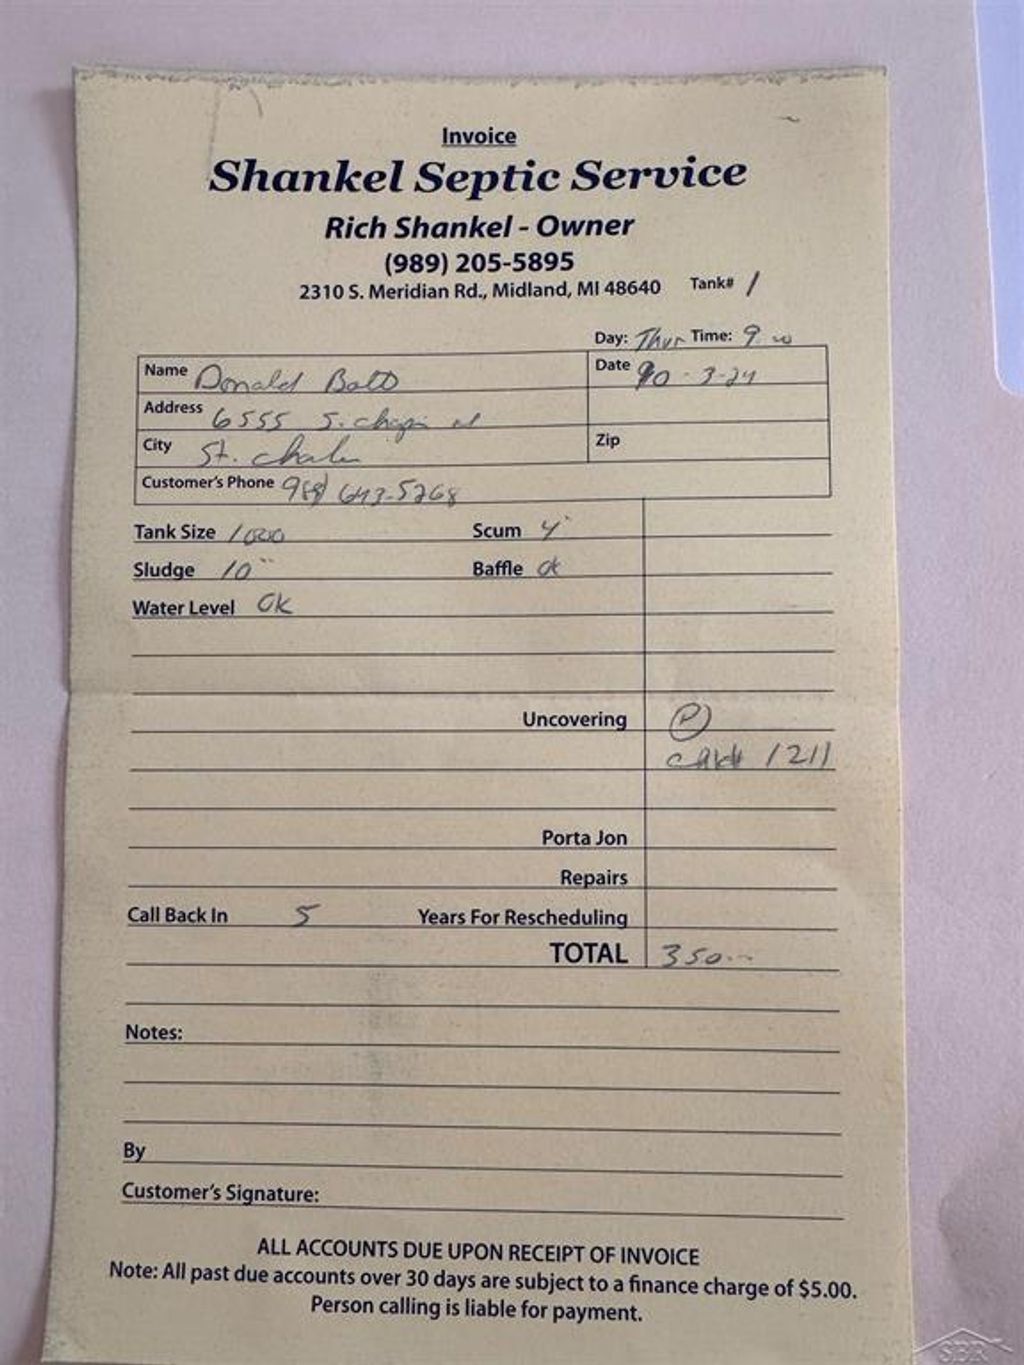 Invoice
Shankel Septic Service
Rich Shankel - Owner
(989) 205-5895
2310 S. Meridian Rd., Midland, MI 48640 Tank# 1
Day: Thur Time: 9
Name Donald Date 10-3-24
Address 6555 S.
City St. Zip
Customer's Phone 643-5268
Tank Size 1000 Scum 4"
Sludge 10" Baffle ok
Water Level OK
Uncovering P
1211
Porta Jon
Repairs
Call Back In 5 Years For Rescheduling
TOTAL 350--
Notes:
By
Customer's Signature:
ALL ACCOUNTS DUE UPON RECEIPT OF INVOICE
Note: All past due accounts over 30 days are subject to a finance charge of $5.00.
Person calling is liable for payment.
SBR